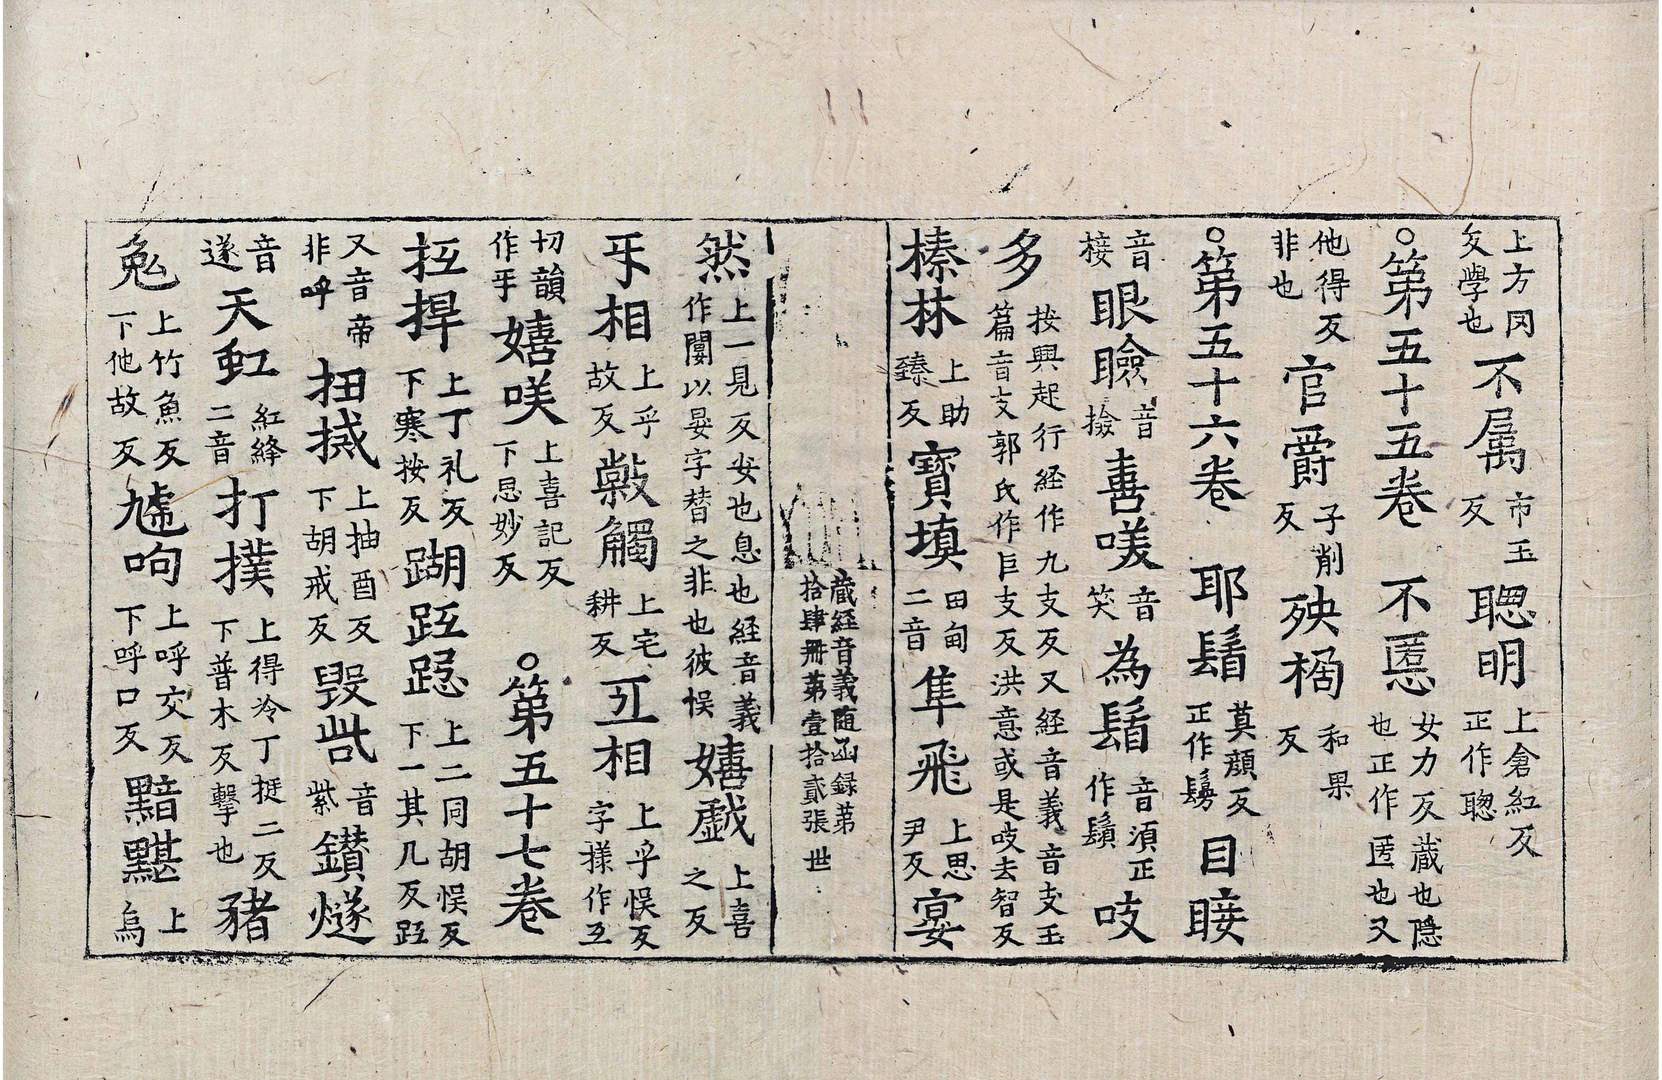 上方冈反學也不属市玉反聦明上倉紅反正作聰
○第五十五卷 不慝女力反蔵也隠也正作匿也又
他得反非也官爵子削反殃榍和果反
○第五十六卷 耶鬚莫顔反正作鬘目䀹
音接眼瞼音撿喜㗛音笑為鬚音須正作鬚吱
多按興起行経作九支反又経音義音支玉篇音支郭氏作巨支反洪意或是吱去智反
榛林上助臻反寳填田甸二音隼飛上思尹反宴
蔵経音義随函録苐拾肆冊苐壹拾貳張 世
然上一見反安也息也経音義作闄以晏字替之非也彼悮嬉戯上喜之反
乎相上乎故反㲉觸上宅耕反互相上乎悮反字樣作互
切韻作乎嬉咲上喜記反下息妙反 ○第五十七卷
抂捍上丁礼反下寒按反蹋跙跽上二同胡悮反下一其几反跙
又音帝非呼扭搣上抽酉反下胡戒反毀呰音紫鑚燧
音遂天虹紅絳二音打撲上得冷丁挻二反下普木反撃也豬
兔上竹魚反下他故反㖃呴上呼交反下呼口反黯黮上烏